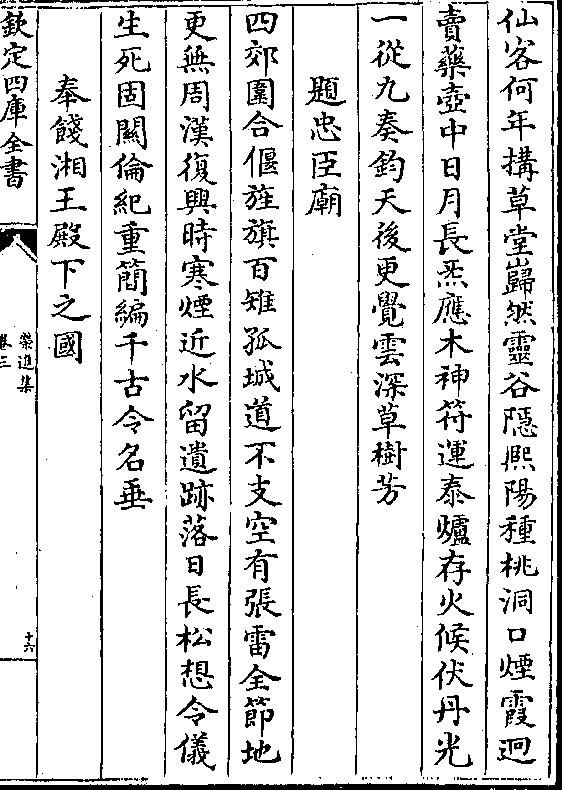 仙客何年構草堂巋然靈谷隱熙陽種桃洞口煙霞迥
賣藥壺中日月長炁應木神符運泰爐存火候伏丹光
一從九奏鈞天後更覺雲深草樹芳
題忠臣廟
四郊圍合偃旌旗百雉孤城道不支空有張雷全節地
更無周漢復興時寒煙近水留遺跡落日長松想令儀
生死固關倫紀重簡編千古令名垂
奉餞湘王殿下之國
欽定四庫全書
榮進集
卷三
十六